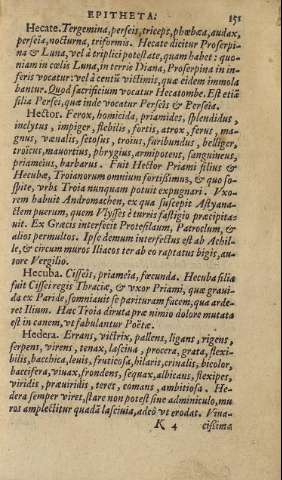 EPITHETA. 151
Hecate. Tergemina, perseis, triceps, phœbæa, audax,
perseia, nocturna, triformis. Hecate dicitur Proserpi-
na & Luna, vel à triplici potestate, quam habet: quo-
niam in cœlis Luna, in terris Diana, Proserpina in in-
feris vocatur: vel à centũ victimis, quæ eidem immola
bantur. Quod sacrificium vocatur Hecatombe. Est etiã
filia Persei, quæ inde vocatur Perseis & Perseia.
Hector. Ferox, homicida, priamides, splendidus,
inclytus, impiger, flebilis, fortis, atrox, ferus, ma-
gnus, vænalis, setosus, troius, furibundus, belliger,
troicus, mauortius, phrygius, armipotens, sanguineus,
priameius, barbarus. Fuit Hector Priami filius &
Hecubæ, Troianorum omnium fortissimus, & quo so-
spite, vrbs Troia nunquam potuit expugnari. Vxo-
rem habuit Andromachen, ex qua suscepit Astyana-
ctem puerum, quem Vlysses è turris fastigio præcipita-
uit. Ex Græcis interfecit Protesilaum, Patroclum, &
alios permultos. Ipse demum interfectus est ab Achil-
le, & circum muros Iliacos ter ab eo raptatus bigis, au-
tore Vergilio.
Hecuba. Cisseis, priameia, fœcunda. Hecuba filia
fuit Cissei regis Thraciæ, & vxor Priami, quæ graui-
da ex Paride, somniauit se parituram facem, quæ arde-
ret Ilium. Hæc Troia diruta præ nimio dolore mutata
est in canem, vt fabulantur Poëtæ.
Hedera. Errans, victrix, pallens, ligans, rigens,
serpens, virens, tenax, lasciua, procera, grata, flexi-
bilis, bacchica, leuis, fruticosa, hilaris, crinalis, bicolor,
baccifera, viuax, frondens, sequax, albicans, flexipes,
viridis, præuiridis, teres, comans, ambitiosa. He-
dera semper viret, stare non potest sine adminiculo, mu
ros amplectitur quadã lasciuia, adeò vt erodat. Vina-
K 4 cissima